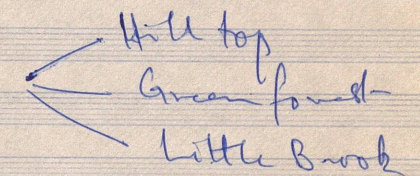 Hill top
Green forest
Little Brook